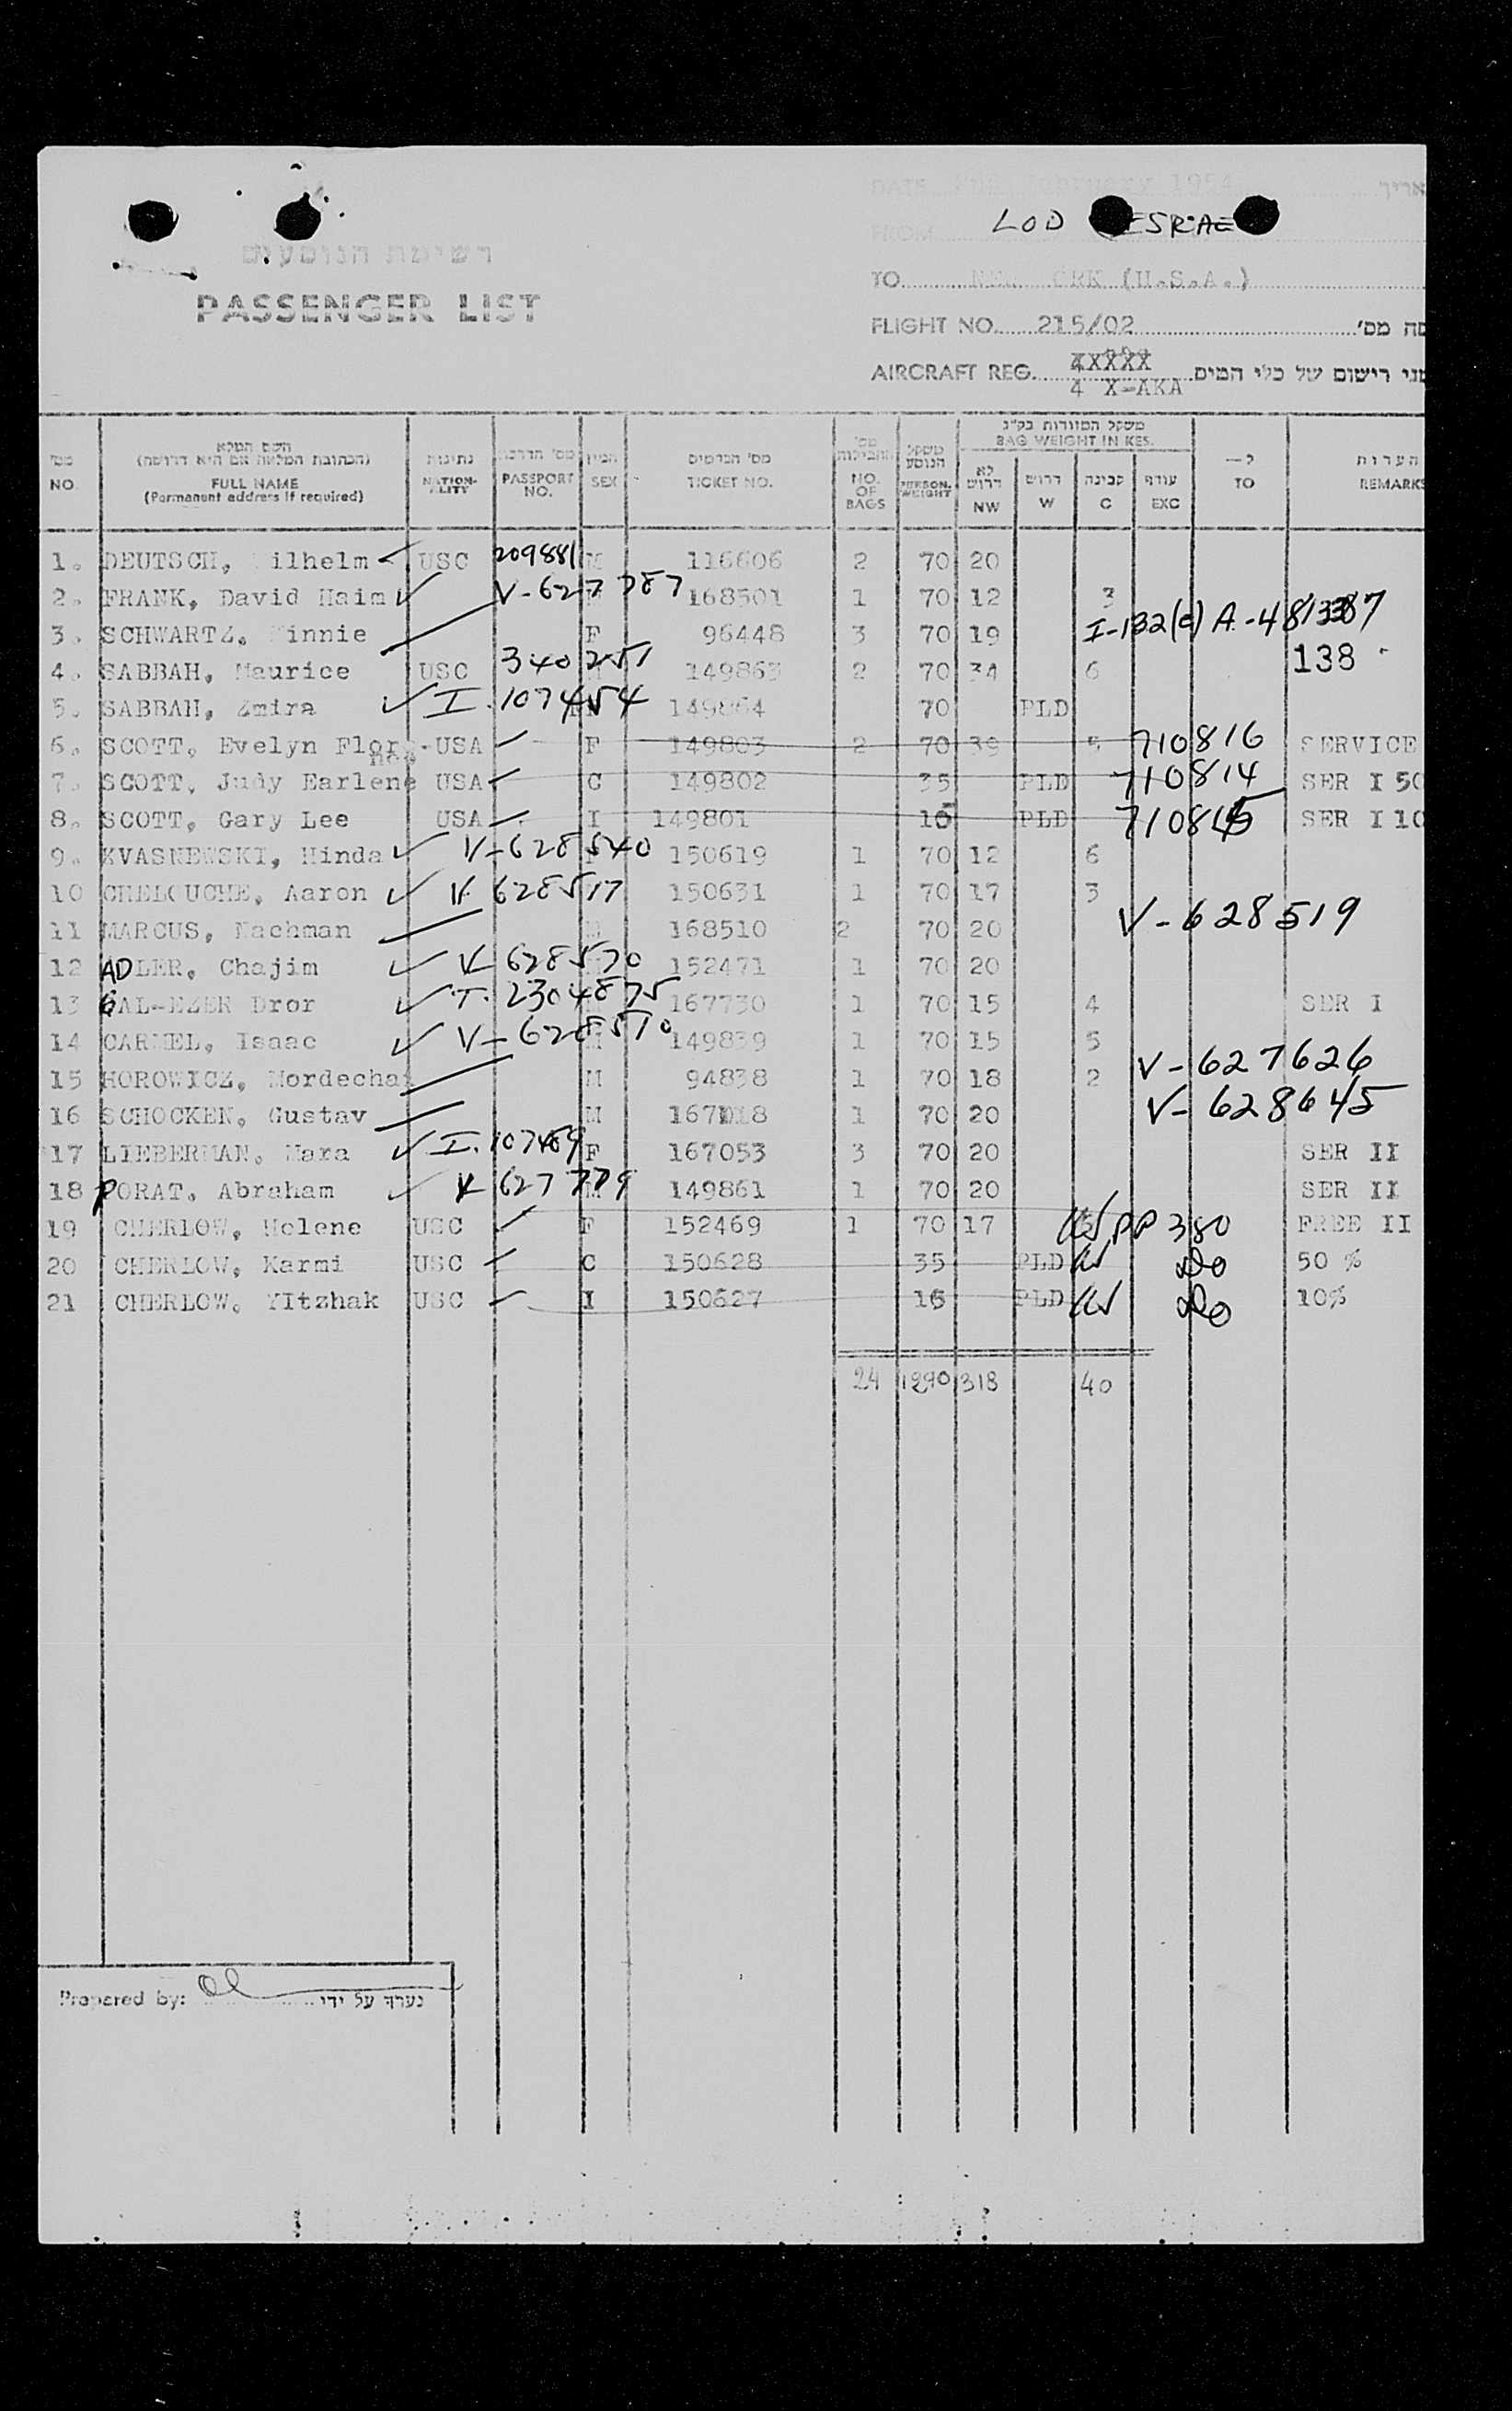 DATE February 1954
LOD
FROM
רשימת הנוסעים
TO ORK (U.S.A.)
PASSENGER LIST
FLIGHT NO. 215/02
AIRCRAFT REG. 4 X-AKA רישום של כלי הטיס
משקל המזוודות בק"ג
BAG WEIGHT IN KES.
מס' השם המלא נתינות מס' הדרכון המין מס' הכרטיס משקל הנוסע לא דרוש דרוש קבינה עודף ל— הערות
(הכתובת המלאה אם היא דרושה)
NO. FULL NAME NATION-ALITY PASSPORT NO. SEX TICKET NO. NO. OF BAGS PERSON. WEIGHT NW W C EXC TO REMARKS
(Permanent address if required)
1. DEUTSCH, ilhelm USC 209881 M 116606 2 70 20
2. FRANK, David Haim V-627787 168501 1 70 12 3
3. SCHWARTZ, innie F 96448 3 70 19 I-132(c) A-
4. SABBAH, Maurice USC 340251 149863 2 70 34 6 138
5. SABBAH, Zmira I.107454 149864 70 PLD
6. SCOTT, Evelyn Flor USA F 149803 2 70 39 5 710816 SERVICE
7. SCOTT, Judy Earlene USA C 149802 35 PLD 710814 SER I 50
8. SCOTT, Gary Lee USA I 149801 PLD SER I 10
9. KVASNEWSKI, Hinda V-628540 150619 1 70 12 6
10 CHELOUCHE, Aaron V 628517 150631 1 70 17 3
11 MARCUS, Nachman M 168510 2 70 20 V-628519
12 ADLER, Chajim V 628570 152471 1 70 20
13 GAL-EZER Dror T. 2304875 167730 1 70 15 4 SER I
14 CARMEL, Isaac V-628510 M 149839 1 70 15 5
15 HOROWICZ, Mordechai M 94838 1 70 18 2 V-627626
16 SCHOCKEN, Gustav M 167018 1 70 20 V-628645
17 LIEBERMAN, Mara I. F 167053 3 70 20 SER II
18 PORAT, Abraham V 627779 M 149861 1 70 20 SER II
19 CHERLOW, Helene USC F 152469 1 70 17 PP 380 FREE II
20 CHERLOW, Karmi USC C 150628 35 PLD do 50 %
21 CHERLOW, YItzhak USC I 150627 PLD do 10%
24 1290 318 40
Prepared by: נערך על ידי